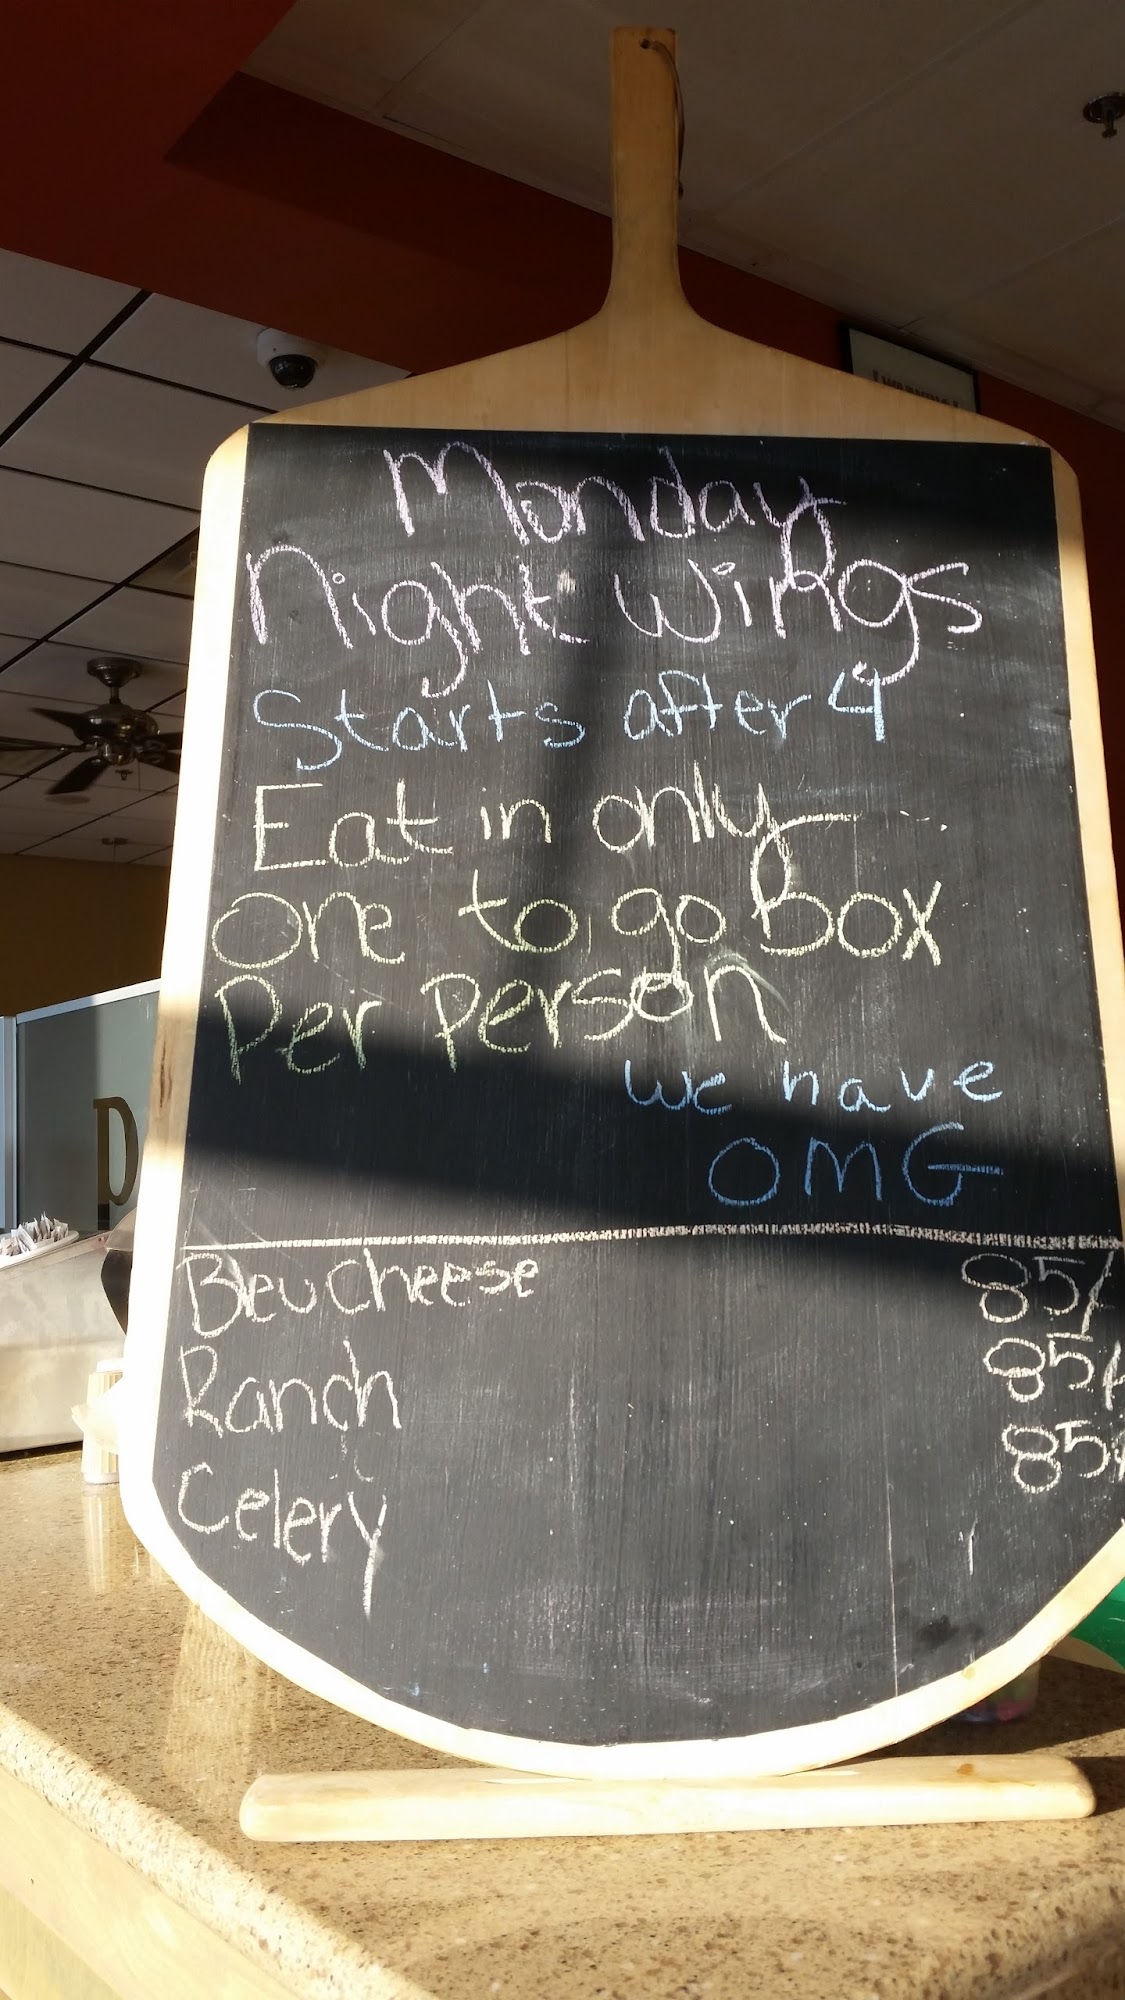 Monday
Night Wings
Starts after 4
Eat in only
One to go Box
Per Person
we have
OMG
Bleu Cheese 85¢
Ranch 85¢
Celery 85¢